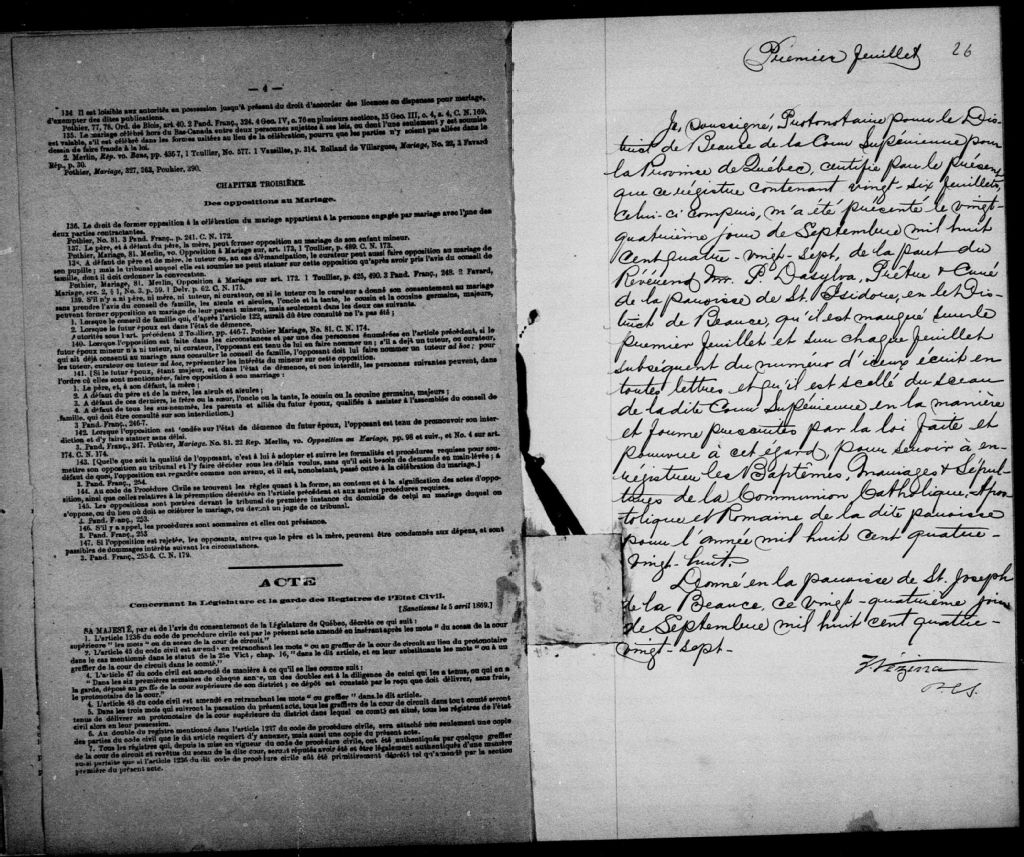 — 4 —
134. Il est loisible aux autorités en possession jusqu'à présent du droit d'accorder des licences ou dispenses pour mariage,
d'exempter des dites publications.
Pothier, 77, 78. Ord. de Blois, art. 40. 2 Pand. Franç., 324. 4 Geo. IV, c. 76 en plusieurs sections, 35 Geo. III, c. 4, s. 4, C. N. 169.
135. Le mariage célébré hors du Bas-Canada entre deux personnes sujettes à ses lois, ou dont l'une seulement y est soumise
est valable, s'il est célébré dans les formes usitées au lieu de la célébration, pourvu que les parties n'y soient pas allées dans le
dessein de faire fraude à la loi.
2. Merlin, Rép. vo. Bans, pp. 436-7, 1 Toullier, No. 577. 1 Vazeilles, p. 314. Rolland de Villargues, Mariage, No. 22, 3 Favard
Rép., p. 30.
Pothier, Mariage, 327, 363, Pouhier, 390.
CHAPITRE TROISIÈME.
Des oppositions au Mariage.
136. Le droit de former opposition à la célébration du mariage appartient à la personne engagée par mariage avec l'une des
deux parties contractantes.
Pothier, No. 81. 3 Pand. Franç., p. 241. C. N. 172.
137. Le père, et à défaut du père, la mère, peut former opposition au mariage de son enfant mineur.
Pothier, Mariage, 81. Merlin, vo. Opposition à Mariage sur art. 173, 1 Toullier, p. 489. C. N. 173.
138. A défaut de père et de mère, le tuteur ou, au cas d'émancipation, le curateur peut aussi faire opposition au mariage de
son pupille; mais le tribunal auquel elle est soumise ne peut statuer sur cette opposition qu'après avoir pris l'avis du conseil de
famille, dont il doit ordonner la convocation.
Pothier, Mariage, 81. Merlin, Opposition à Mariage sur art. 172. 1 Toullier, p. 425, 490. 3 Pand. Franç., 248. 2 Favard,
Mariage, sec. 2, § 1, No. 3, p. 59. 1 Delv. p. 62 C. N. 175.
139. S'il n'y a ni père, ni mère, ni tuteur, ni curateur, ou si le tuteur ou le curateur a donné son consentement au mariage
sans prendre l'avis du conseil de famille, les aïeuls et aïeules, l'oncle et la tante, le cousin et la cousine germains, majeurs,
peuvent former opposition au mariage de leur parent mineur, mais seulement dans les deux cas suivants.
1. Lorsque le conseil de famille qui, d'après l'article 122, aurait dû être consulté ne l'a pas été;
2. Lorsque le futur époux est dans l'état de démence.
Autorités sous l'art. précédent 2 Toullier, pp. 446-7. Pothier Mariage, No. 81. C. N. 174.
140. Lorsque l'opposition est faite dans les circonstances et par une des personnes énumérées en l'article précédent, si le
futur époux mineur n'a ni tuteur, ni curateur, l'opposant est tenu de lui en faire nommer un; s'il a dejà un tuteur, ou curateur,
qui ait déjà consenti au mariage sans consulter le conseil de famille, l'opposant doit lui faire nommer un tuteur ad hoc; pour
les tuteur, curateur ou tuteur ad hoc, représenter les intérêts du mineur sur cette opposition.
141. [Si le futur époux, étant majeur, est dans l'état de démence, et non interdit, les personnes suivantes peuvent, dans
l'ordre où elles sont mentionnées, faire opposition à son mariage:
1. Le père, et, à son défaut, la mère;
2. A défaut du père et de la mère, les aïeuls et aïeules;
3. A défaut de ces derniers, le frère ou la sœur, l'oncle ou la tante, le cousin ou la cousine germains, majeurs;
4. A défaut de tous les sus-nommés, les parents et alliés du futur époux, qualifiés à assister à l'assemblée du conseil de
famille, qui doit être consulté sur son interdiction.]
3 Pand. Franç., 246-7.
142. Lorsque l'opposition est fondée sur l'état de démence du futur époux, l'opposant est tenu de promouvoir son inter-
diction et d'y faire statuer sans délai.
3. Pand. Franç., 247. Pothier, Mariage, No. 81. 22 Rep. Merlin, vo. Opposition au Mariage, pp. 98 et suiv., et No. 4 sur art.
174. C. N. 174.
143. [Quelle que soit la qualité de l'opposant, c'est à lui à adopter et suivre les formalités et procédures requises pour sou-
mettre son opposition au tribunal et l'y faire décider sous les délais voulus, sans qu'il soit besoin de demande en main-levée; à
défaut de quoi, l'opposition est regardée comme non avenu, et il est, nonobstant, passé outre à la célébration du mariage.]
3. Pand. Franç., 254.
144. Au code de Procédure Civile se trouvent les règles quant à la forme, au contenu et à la signification des actes d'oppo-
sition, ainsi que celles relatives à la péremption décrétée en l'article précédent et aux autres procédures requises.
145. Les oppositions sont portées devant le tribunal de première instance du domicile de celui au mariage duquel on
s'oppose, ou du lieu où doit se célébrer le mariage, ou devant un juge de ce tribunal.
3. Pand. Franç., 253.
146. S'il y a appel, les procédures sont sommaires et elles ont préséance.
3. Pand. Franç., 253
147. Si l'opposition est rejetée, les opposants, autres que le père et la mère, peuvent être condamnés aux dépens, et sont
passibles de dommages intérêts suivant les circonstances.
3. Pand. Franç., 255-6. C. N. 179.
ACTE
Concernant la Législature et la garde des Registres de l'Etat Civil.
[Sanctionné le 5 avril 1869.]
SA MAJESTÉ, par et de l'avis du consentement de la Législature de Québec, décrète ce qui suit:
1. L'article 1236 du code de procédure civile est par le présent acte amendé en insérant après les mots "du sceau de la cour
supérieure" les mots "ou du sceau de la cour de circuit."
2. L'article 45 du code civil est amendé en retranchant les mots "ou au greffier de la cour de circuit au lieu du protonotaire
dans le cas mentionné dans le statut de la 25e Vict; chap. 16," dans le dit article, et en leur substituant les mots "ou à un
greffier de la cour de circuit dans le comté."
4. L'article 47 du code civil est amendé de manière à ce qu'il se lise comme suit:
"Dans les six premières semaines de chaque année, un des doubles est à la diligence de celui qui les a tenus, ou qui en a
la garde, déposé au greffe de la cour supérieure de son district; ce dépôt est constaté par le reçu que doit délivrer, sans frais,
le protonotaire de la cour."
4. L'article 48 du code civil est amendé en retranchant les mots "ou greffier" dans le dit article.
5. Dans les trois mois qui suivront la passation du présent acte, tous les greffiers de la cour de circuit dans tout comté seront
tenus de délivrer au protonotaire de la cour supérieure du district dans lequel ce comté est situé, tous les régistres de l'état
civil alors en leur possession.
6. Au double du registre mentionné dans l'article 1237 du code de procédure civile, sera attaché non seulement une copie
des parties du code civil que le dit article requiert d'y annexer, mais aussi une copie du présent acte.
7. Tous les régistres qui, depuis la mise en vigueur du code de procédure civile, ont été authentiqués par quelque greffier
de la cour de circuit et revêtus du sceau de la dite cour, seront réputés avoir été et être légalement authentiqués d'une manière
aussi parfaite que si l'article 1236 du dit code de procédure civile eût été primitivement décrété tel qu'amendé par la section
première du présent acte.
Premier feuillet 26
Je, soussigné, Protonotaire pour le Dis-
trict de Beauce de la Cour Supérieure pour
la Province de Québec, certifie par le présent
que ce régistre contenant vingt-six feuillets,
celui-ci compris, m'a été présenté le vingt-
quatrième jour de Septembre mil huit
cent quatre-vingt-sept, de la part du
Révérend Mr. P. Dasylva, Prêtre & Curé
de la paroisse de St. Isidore, en le Dis-
trict de Beauce, qu'il est marqué sur le
premier feuillet et sur chaque feuillet
subséquent du numéro d'iceux écrit en
toutes lettres et qu'il est scellé du sceau
de la dite Cour Supérieure en la manière
et forme prescrites par la loi faite et
pourvue à cet égard, pour servir à en-
régistrer les Baptêmes, Mariages & Sépul-
tures de la Communion Catholique, Apos-
tolique et Romaine de la dite paroisse
pour l'année mil huit cent quatre-
vingt-huit.
Donné en la paroisse de St. Joseph
de la Beauce, ce vingt-quatrième jour
de Septembre mil huit cent quatre-
vingt-sept.
Vézina
P.C.S.